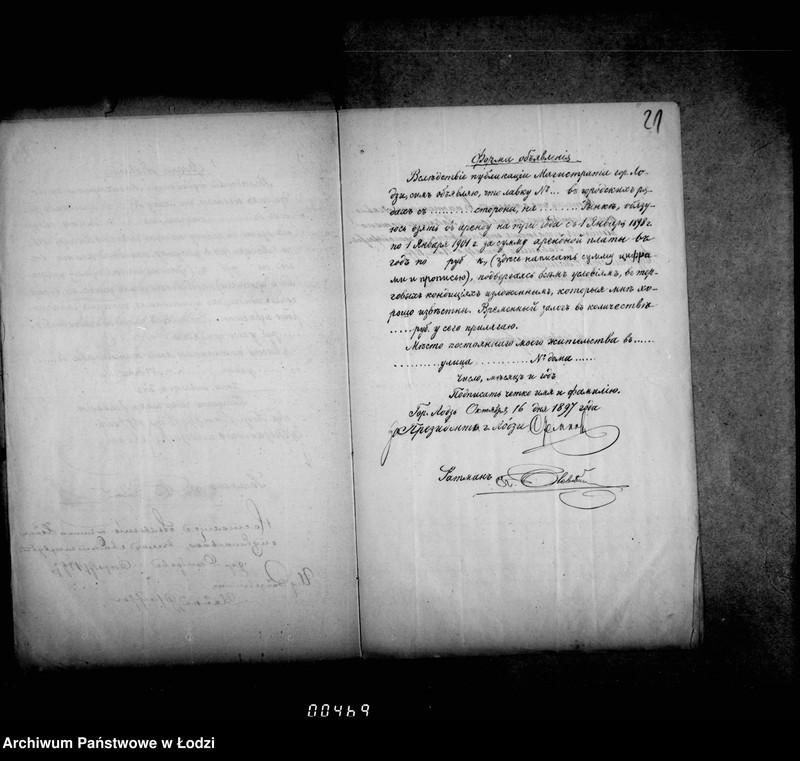 21
Форма объявленія.
Вслѣдствіе публикаціи Магистрата гор. Ло-
дзи, симъ объявляю, что лавку №... въ городскихъ ря-
дахъ съ ......... сторона, на ......... Рынкѣ, обязу-
юсь взять въ аренду на три года съ 1 Января 1898 г.
по 1 Января 1901 г. за сумму арендной платы въ
годъ по руб. к., (здѣсь написать сумму цифра-
ми и прописью), подвергаясь всѣмъ условіямъ, въ тор-
говыхъ кондиціяхъ изложеннымъ, которыя мнѣ хо-
рошо извѣстны. Временный залогъ въ количествѣ
..... руб. у сего прилагаю.
Мѣсто постояннаго моего жительства въ......
......... улица ......... № дома ......
Число, мѣсяцъ и годъ
Подписать четко имя и фамилію.
Гор. Лодзь Октября 16 дня 1897 года
За Президента г. Лодзи
Ратманъ
00469
Archiwum Państwowe w Łodzi